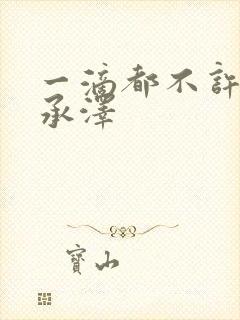 一滴都不許
承澤
寶山